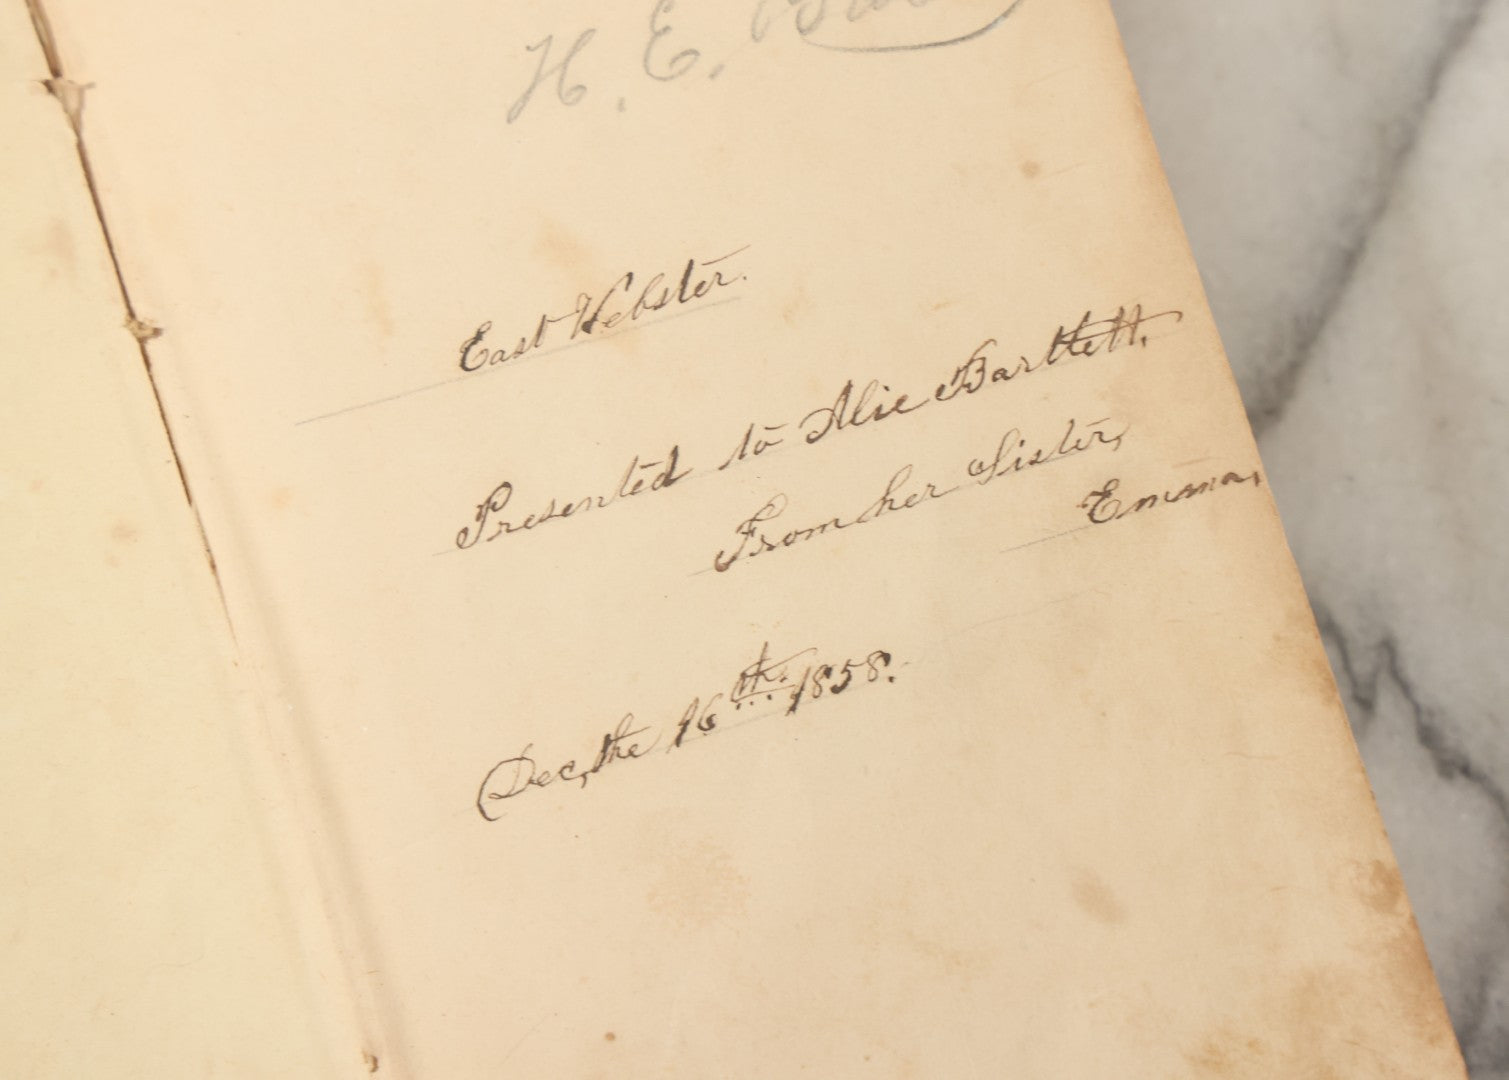 H. E.
East Webster.
Presented to Alie Bartlett.
From her Sister,
Emma,
Dec, the 16th. 1858.